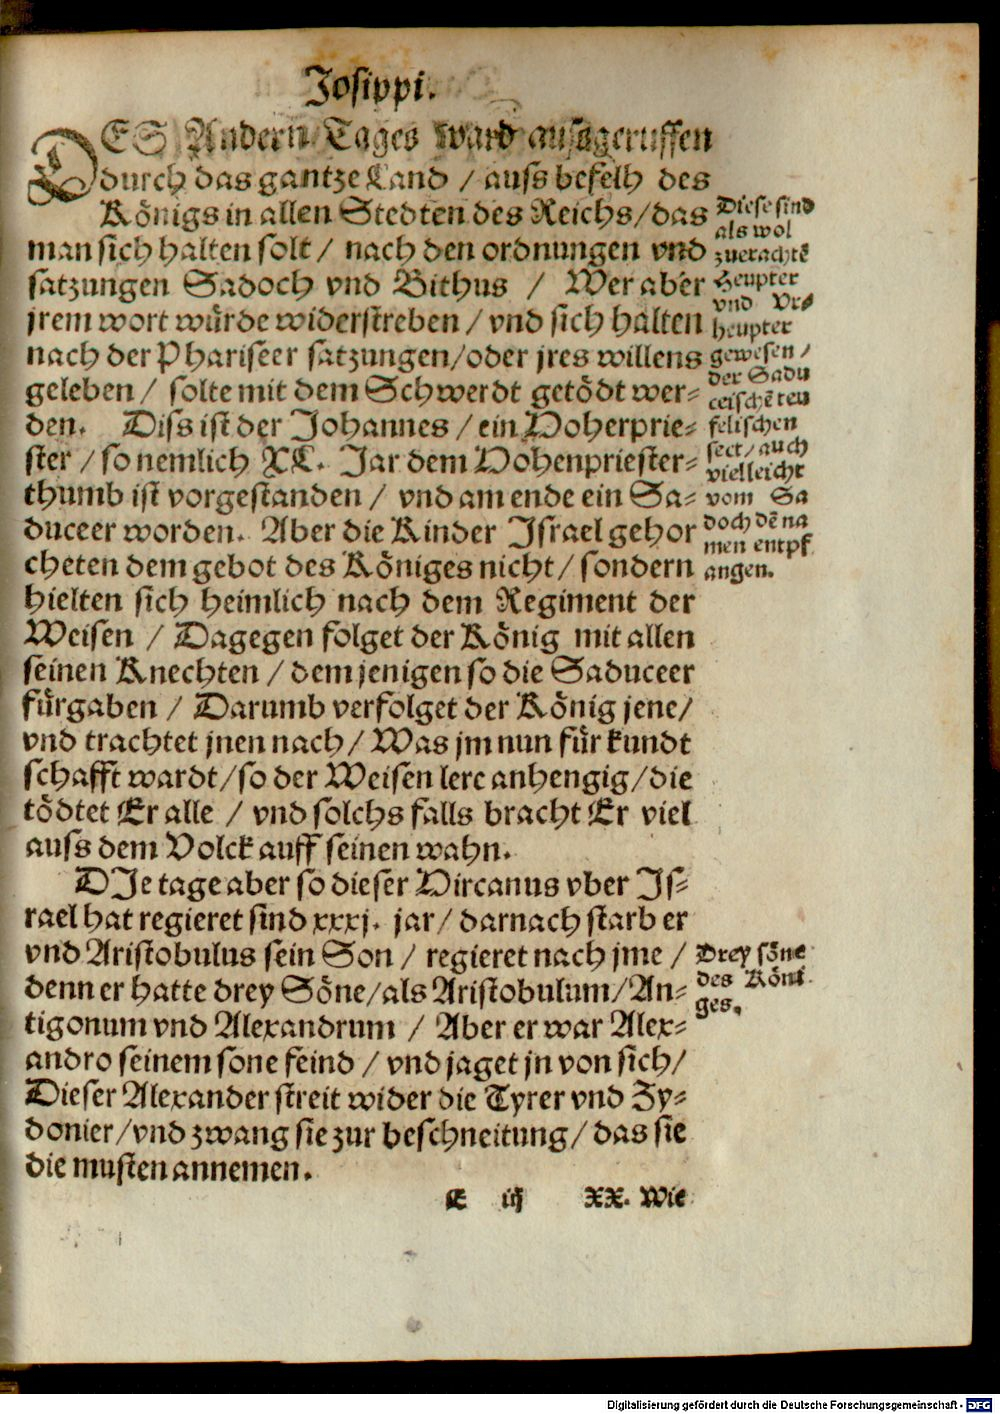 Josippi.
DES Andern Tages ward aussgeruffen
durch das gantze Land / auss befelh des
Königs in allen Stedten des Reichs/das
man sich halten solt / nach den ordnungen vnd
satzungen Sadoch vnd Bithus / Wer aber
jrem wort würde widerstreben / vnd sich halten
nach der Phariseer satzungen/oder jres willens
geleben / solte mit dem Schwerdt getödt wer⸗
den. Diss ist der Johannes / ein Hoherprie⸗
ster / so nemlich XL. Jar dem Hohenpriester⸗
thumb ist vorgestanden / vnd am ende ein Sa⸗
duceer worden. Aber die Kinder Israel gehor
cheten dem gebot des Königes nicht / sondern
hielten sich heimlich nach dem Regiment der
Weisen / Dagegen folget der König mit allen
seinen Knechten / dem jenigen so die Saduceer
fürgaben / Darumb verfolget der König jene/
vnd trachtet jnen nach / Was jm nun für kundt
schafft wardt/so der Weisen lere anhengig/die
tödtet Er alle / vnd solchs falls bracht Er viel
auss dem Volck auff seinen wahn.
DIe tage aber so dieser Hircanus vber Is⸗
rael hat regieret sind xxxj. jar / darnach starb er
vnd Aristobulus sein Son / regieret nach jme /
denn er hatte drey Söne/als Aristobulum/An⸗
tigonum vnd Alexandrum / Aber er war Alex⸗
andro seinem sone feind / vnd jaget jn von sich/
Dieser Alexander streit wider die Tyrer vnd Zy⸗
donier/vnd zwang sie zur beschneitung/das sie
die musten annemen.
E iij XX. Wie
Diese sind
als wol
zuerachtē
Heupter
vnd Vr⸗
heupter
gewesen /
der Sadu
ceischē teu
felischen
sect/auch
vielleicht
vom Sa
doch dē na
men entpf
angen.
Drey söne
des Köni
ges.
Digitalisierung gefördert durch die Deutsche Forschungsgemeinschaft - DFG